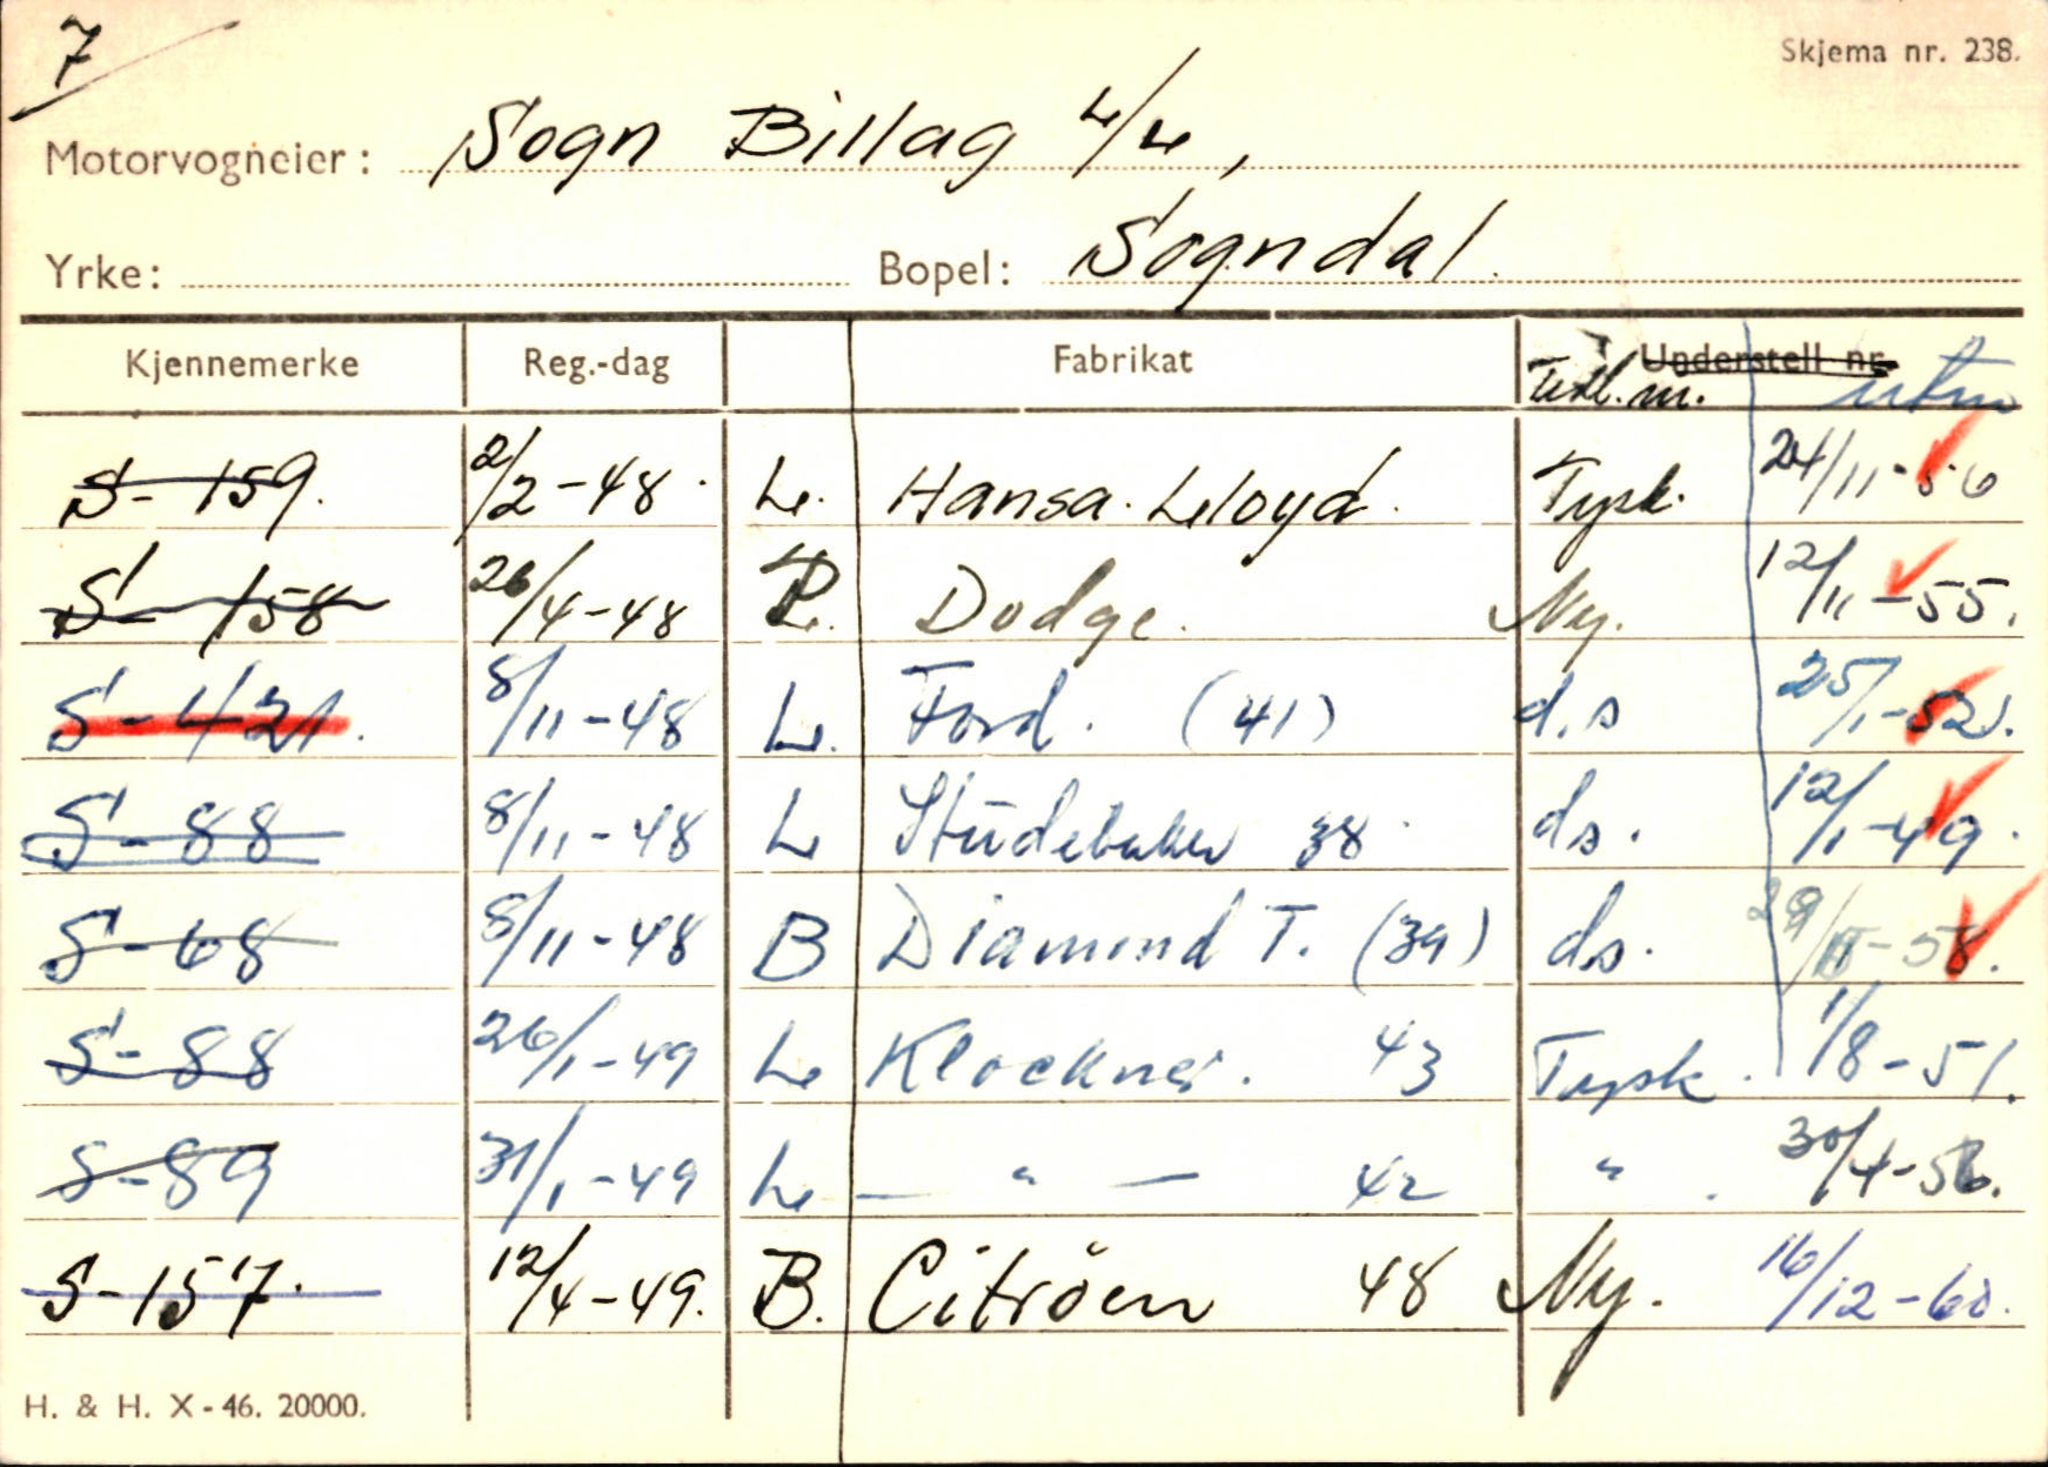 7
Skjema nr. 238.
Motorvogneier: Sogn Billag L/L,
Yrke: Bopel: Sogndal.
Kjennemerke Reg.-dag Fabrikat Understell nr.
S-159. 2/2-48. L. Hansa. Lloyd. Tysk. 24/11-56
S-158 26/4-48 Dodge. Ny. 12/11-55.
S-421. 8/11-48 L. Ford. (41) d.s 25/1-52.
S-88 8/11-48 L Studebaker 38. ds. 12/1-49.
S-68 8/11-48 B Diamond T. (39) ds. 58.
S-88 26/1-49 L Klockner. 43 Tysk. 1/8-51.
S-89 31/1-49 L — " — 42 " . 30/4-56.
S-157. 12/4-49. B. Citröen 48 Ny. 16/12-60.
H. & H. X-46. 20000.